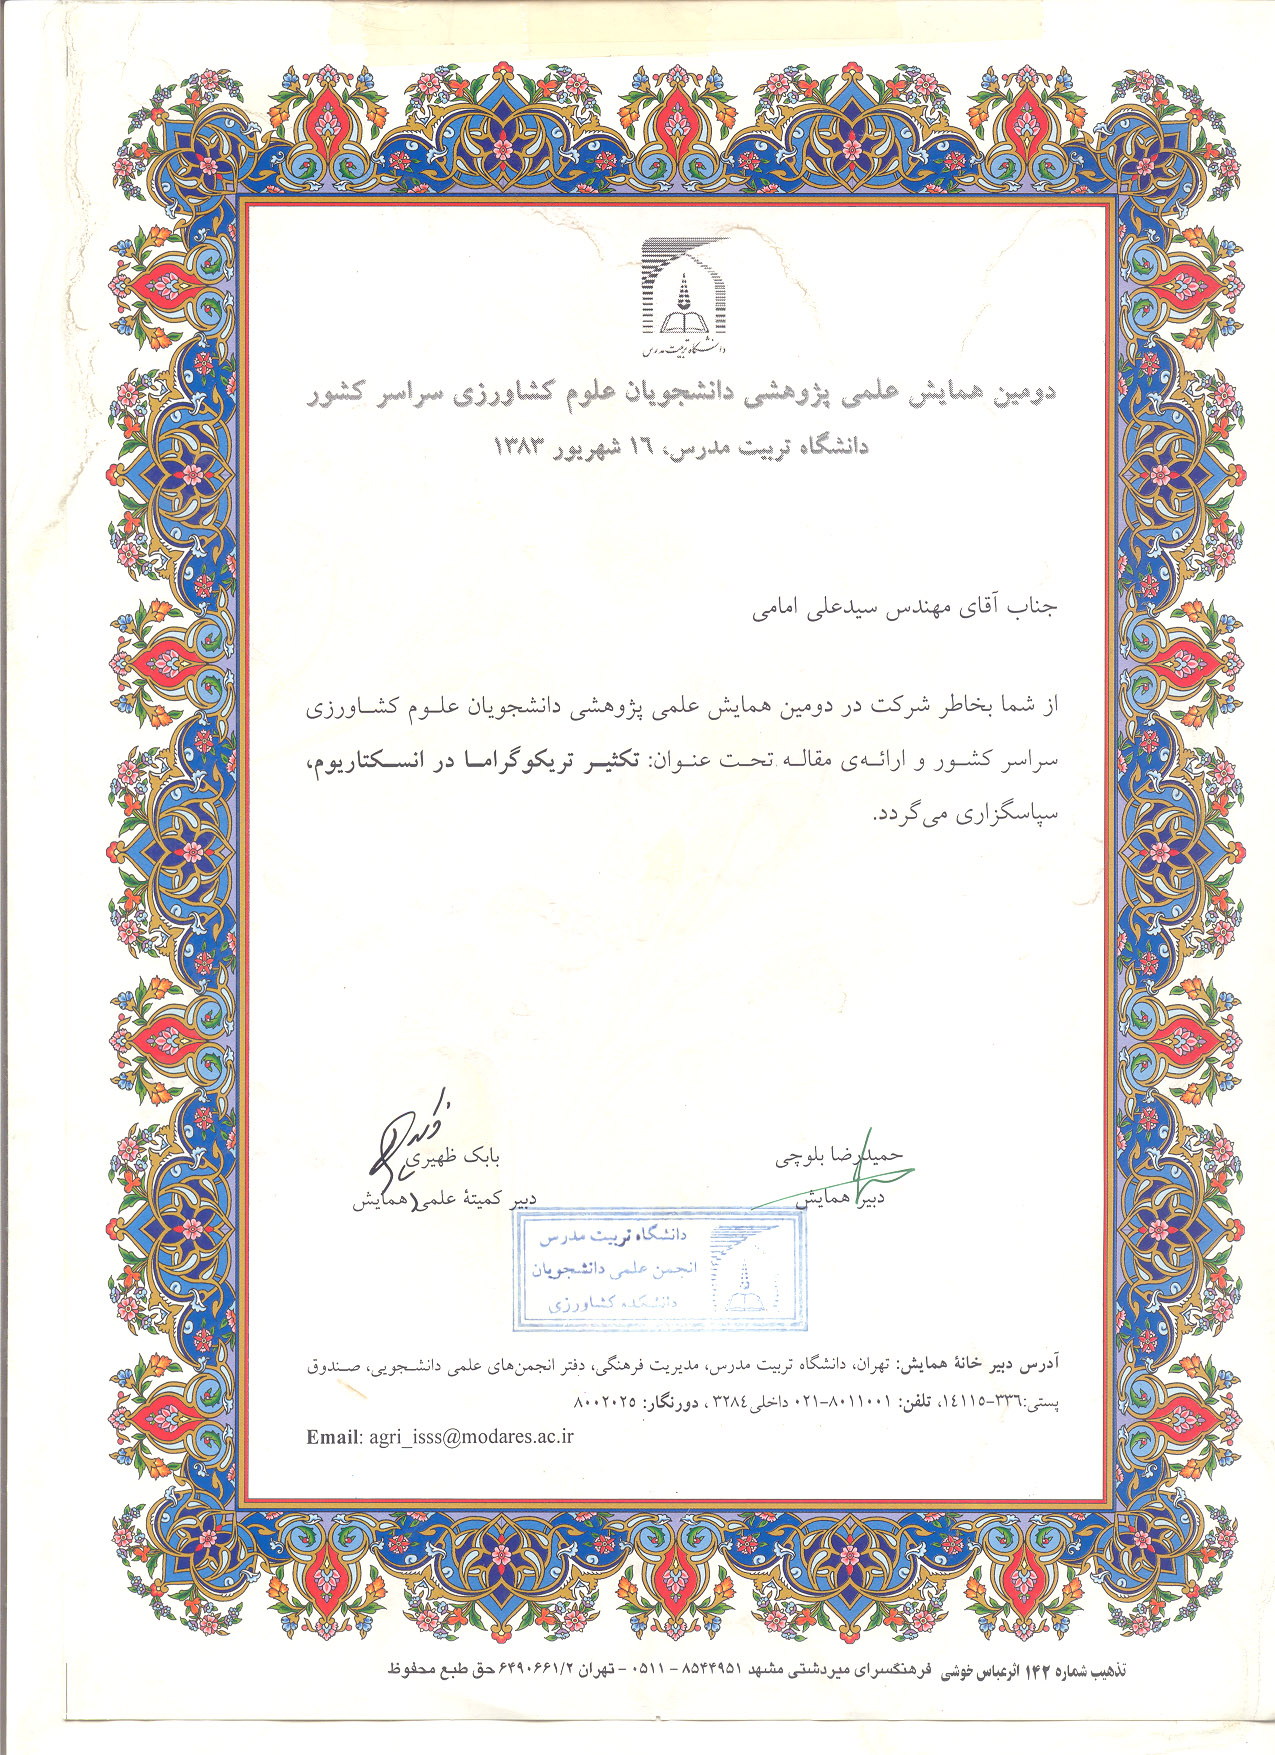 دانشگاه تربیت مدرس
دومین همایش علمی پژوهشی دانشجویان علوم کشاورزی سراسر کشور
دانشگاه تربیت مدرس، ۱٦ شهریور ۱۳۸۳
جناب آقای مهندس سیدعلی امامی
از شما بخاطر شرکت در دومین همایش علمی پژوهشی دانشجویان علـوم کشـاورزی
سراسر کشـور و ارائـه‌ی مقالـه تحـت عنـوان: تکثیـر تریکوگرامـا در انسـکتاریوم،
سپاسگزاری می‌گردد.
حمیدرضا بلوچی
دبیر همایش
بابک ظهیری
دبیر کمیتۀ علمی همایش
دانشگاه تربیت مدرس
انجمن علمی دانشجویان
دانشکده کشاورزی
آدرس دبیر خانۀ همایش: تهران، دانشگاه تربیت مدرس، مدیریت فرهنگی، دفتر انجمن‌های علمی دانشـجویی، صـندوق
پستی:۳۳٦-۱٤۱۱۵، تلفن: ۸۰۱۱۰۰۱-۰۲۱ داخلی ۳۲۸٤، دورنگار: ۸۰۰۲۰۲۵
Email: agri_isss@modares.ac.ir
تذهیب شماره ۱۴۲ اثرعباس خوشی فرهنگسرای میردشتی مشهد ۸۵۴۴۹۵۱ - ۰۵۱۱ - تهران ۶۴۹۰۶۶۱/۲ حق طبع محفوظ